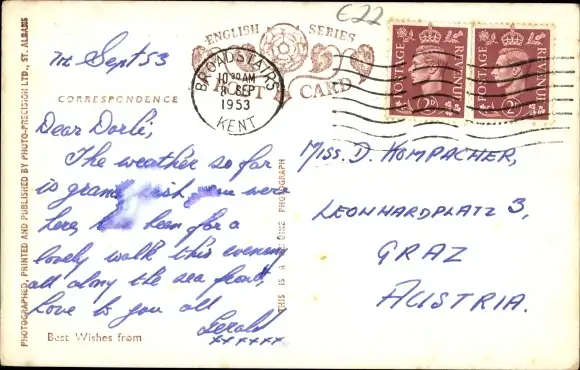 €22
ENGLISH SERIES
POST CARD
BROADSTAIRS
10 30 AM
8 SEP
1953
KENT
POSTAGE REVENUE
2D
POSTAGE REVENUE
2D
PHOTOGRAPHED, PRINTED AND PUBLISHED BY PHOTO-PRECISION LTD., ST. ALBANS
7th Sept 53
CORRESPONDENCE
Dear Dorli,
The weather so far
is grand wish you were
here, has been for a
lovely walk this evening
all along the sea front,
Love to you all
Gerald
xxxxxx
Best Wishes from
THIS IS A GENUINE PHOTOGRAPH
MISS. D. KOMPACHER,
LEONHARDPLATZ 3,
GRAZ
AUSTRIA.